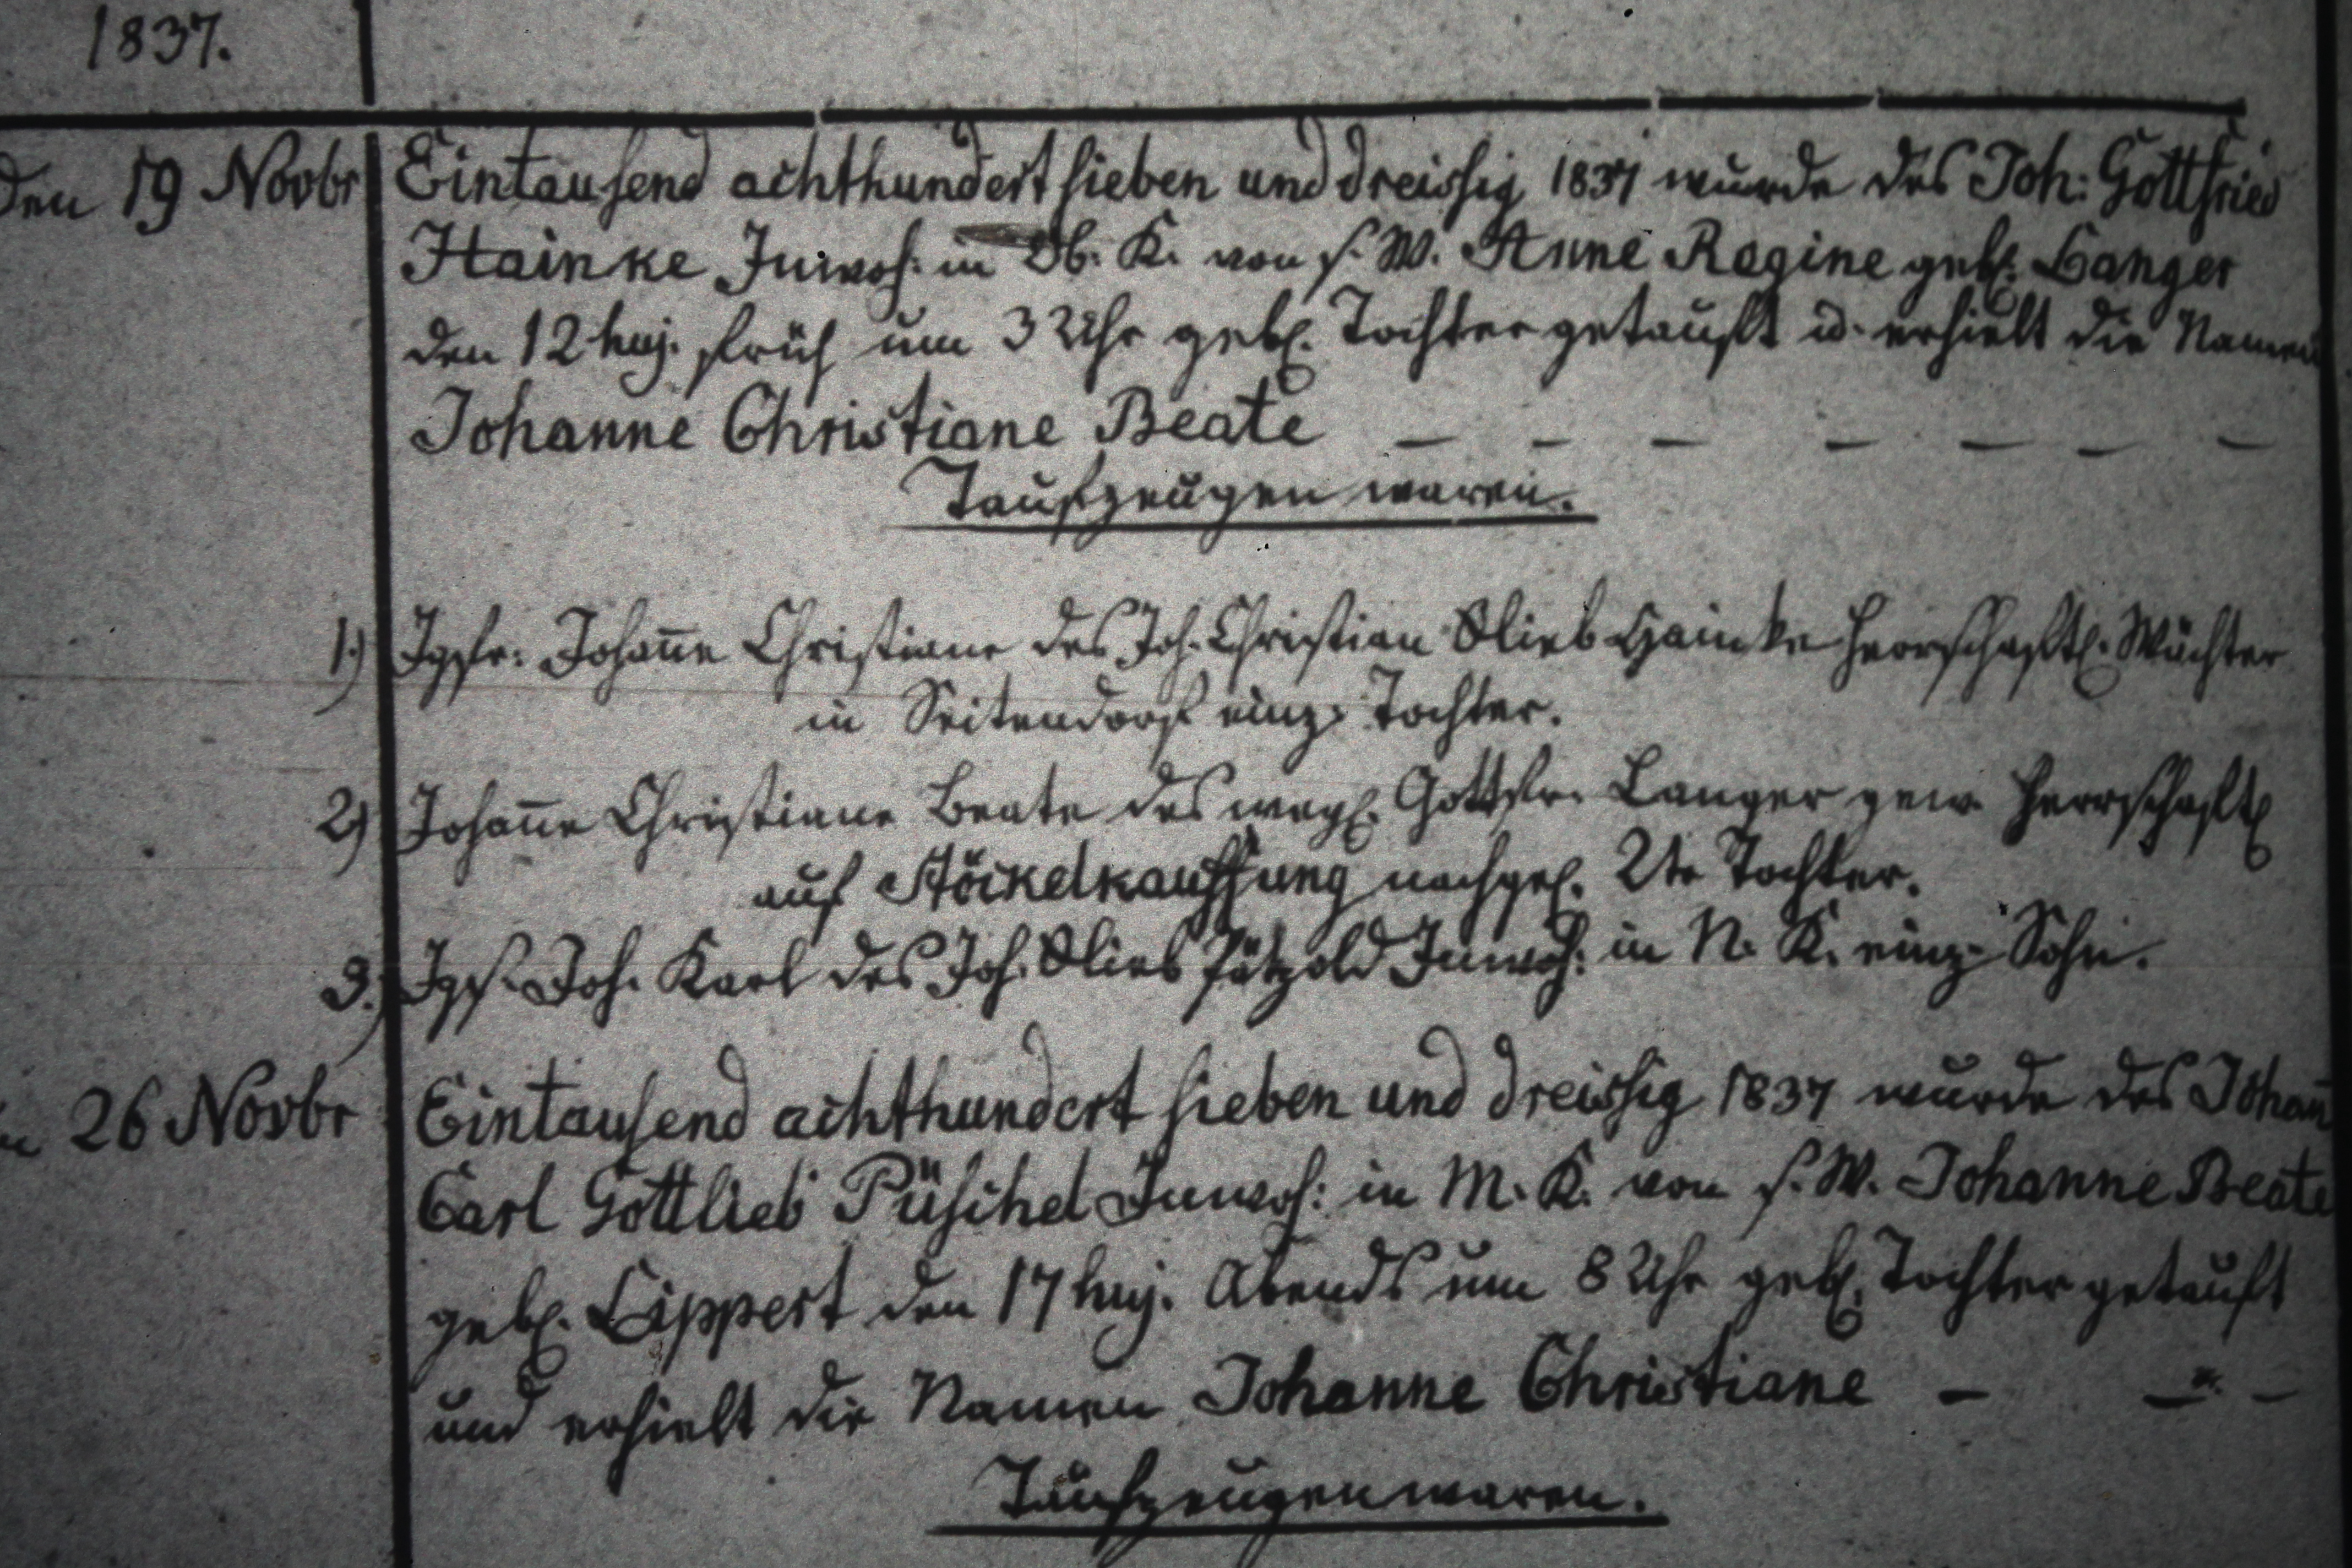 1837.
den 19 Novbr Eintausend achthundert sieben und dreissig 1837 wurde des Joh: Gottfried
Hainke Inwoh: in Ob. K. von s. W. Anne Regine geb. Langer
den 12 huj. früh um 3 Uhr geb. Tochter getauft u. erhielt die Namen
Johanne Christiane Beate — — — — — — —
Taufzeugen waren.
1.) Jgfr. Johañe Christiane des Joh. Christian Glieb Hainke herrschaftl. Wächter
in Seitendorf einz. Tochter.
2) Johañe Christiane Beate des weyl. Gottfr. Langer gew. herrschaftl.
auf Stöckelkauffung nachgel. 2te Tochter.
3.) Jgs. Joh. Karl des Joh. Glieb Pätzold Inwoh: in N. K. einz. Sohn.
26 Novbr Eintausend achthundert sieben und dreissig 1837 wurde des Johañ
Carl Gottlieb Püschel Inwoh: in M. K. von s. W. Johanne Beate
geb. Lippert den 17 huj. Abends um 8 Uhr geb. Tochter getauft
und erhielt die Namen Johanne Christiane — — —
Taufzeugen waren.